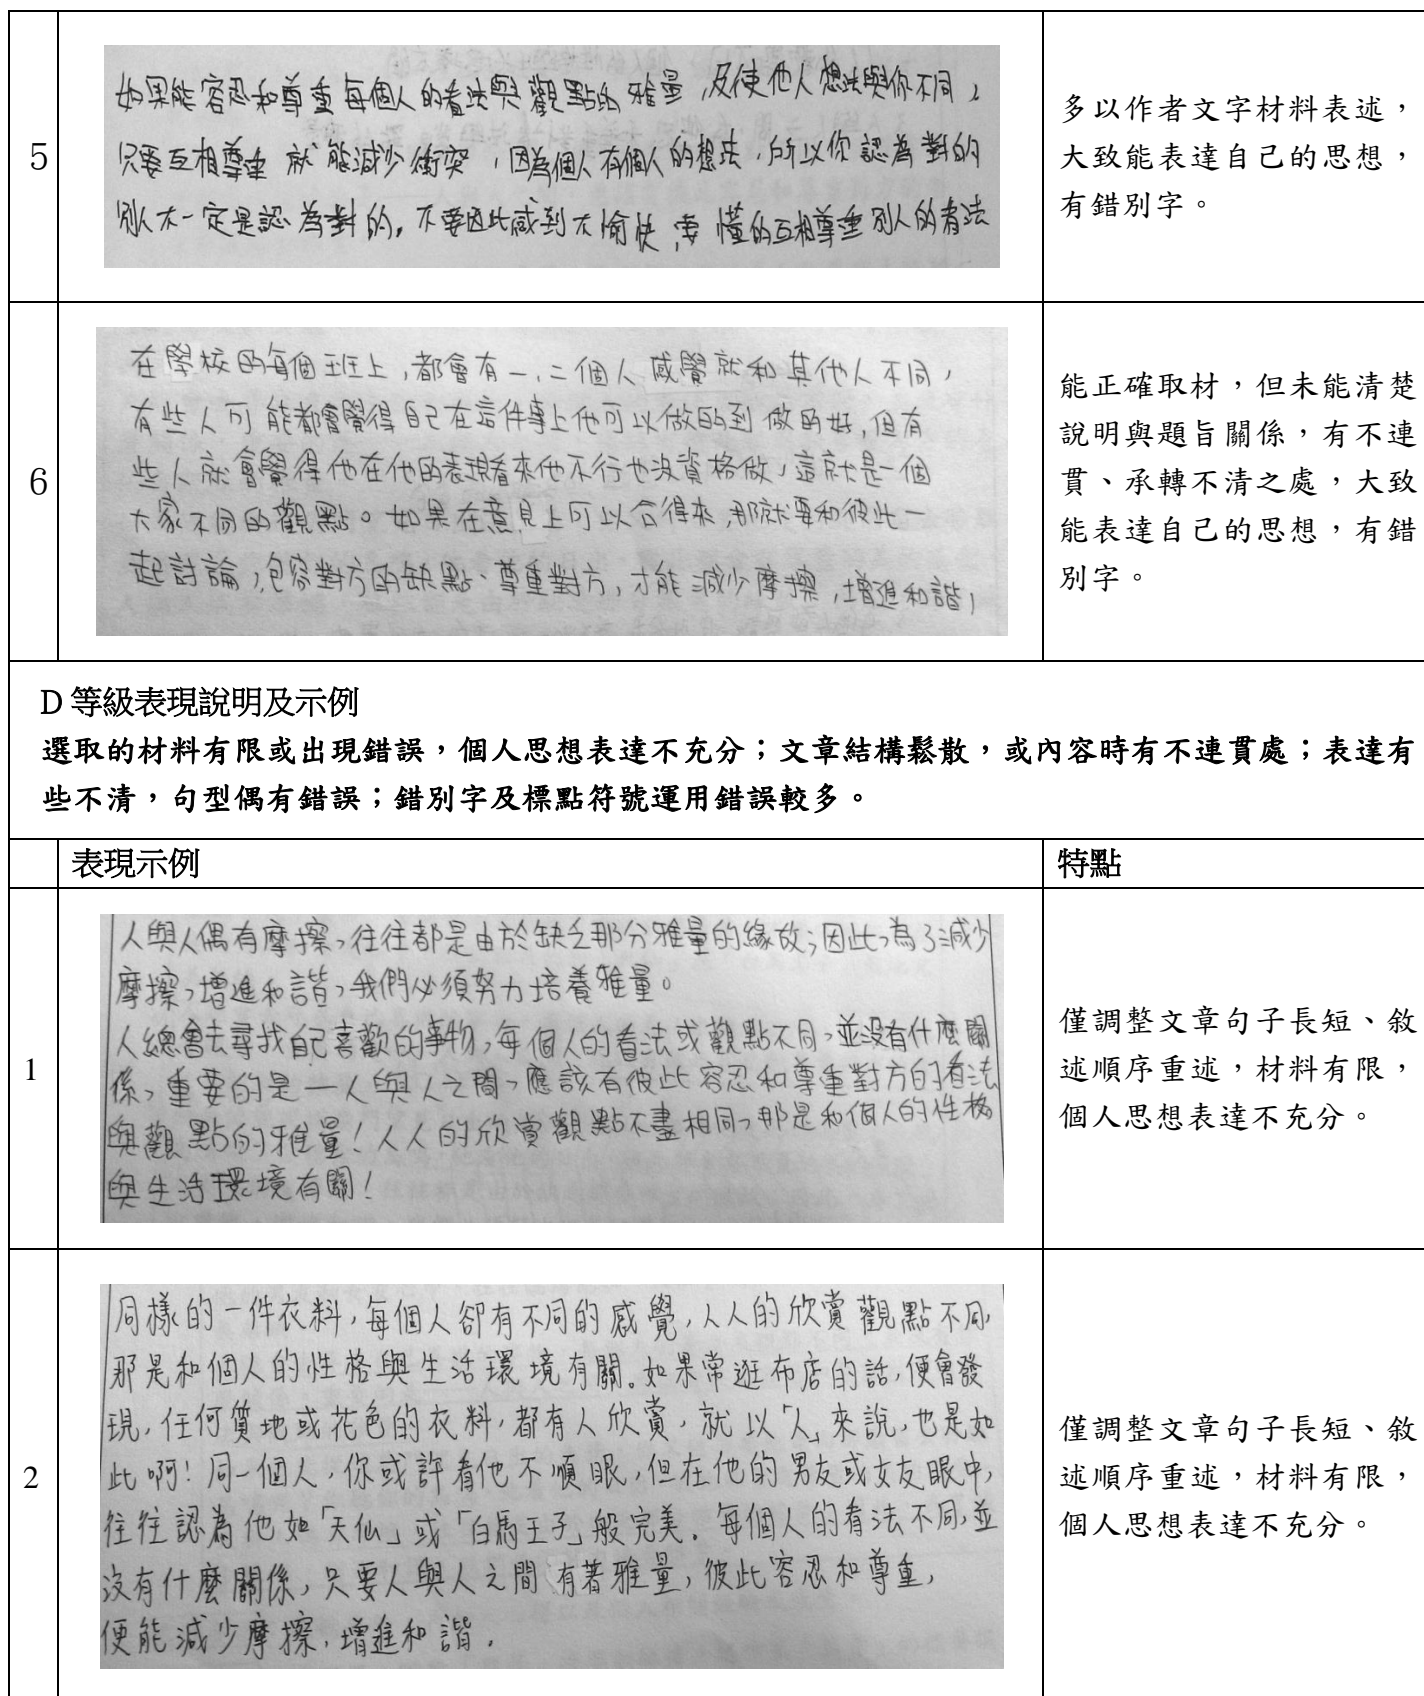 5
如果能容忍和尊重每個人的看法與觀點的雅量,及使他人想法與你不同,
只要互相尊重 就能減少衝突,因為個人有個人的想法,所以你認為對的
別人不一定是認為對的。不要因此感到不愉快,要懂的互相尊重別人的看法
多以作者文字材料表述,
大致能表達自己的思想,
有錯別字。
6
在學校的每個班上,都會有一、二個人感覺就和其他人不同,
有些人可能都會覺得自己在這件事上他可以做的到做的好,但有
些人就會覺得他在他的表現看來他不行也沒資格做,這就是一個
大家不同的觀點。如果在意見上可以合得來,那就要和彼此一
起討論,包容對方的缺點、尊重對方,才能減少摩擦,增進和諧,
能正確取材,但未能清楚
說明與題旨關係,有不連
貫、承轉不清之處,大致
能表達自己的思想,有錯
別字。
D 等級表現說明及示例
選取的材料有限或出現錯誤,個人思想表達不充分;文章結構鬆散,或內容時有不連貫處;表達有
些不清,句型偶有錯誤;錯別字及標點符號運用錯誤較多。
表現示例
特點
1
人與人偶有摩擦,往往都是由於缺乏那分雅量的緣故;因此,為了減少
摩擦,增進和諧,我們必須努力培養雅量。
人總會去尋找自己喜歡的事物,每個人的看法或觀點不同,並沒有什麼關
係,重要的是—人與人之間,應該有彼此容忍和尊重對方的看法
與觀點的雅量!人人的欣賞觀點不盡相同,那是和個人的性格
與生活環境有關!
僅調整文章句子長短、敘
述順序重述,材料有限,
個人思想表達不充分。
2
同樣的一件衣料,每個人卻有不同的感覺,人人的欣賞觀點不同,
那是和個人的性格與生活環境有關。如果常逛布店的話,便會發
現,任何質地或花色的衣料,都有人欣賞,就以「人」來說,也是如
此啊!同一個人,你或許看他不順眼,但在他的男友或女友眼中,
往往認為他如「天仙」或「白馬王子」般完美。每個人的看法不同,並
沒有什麼關係,只要人與人之間有著雅量,彼此容忍和尊重,
便能減少摩擦,增進和諧。
僅調整文章句子長短、敘
述順序重述,材料有限,
個人思想表達不充分。